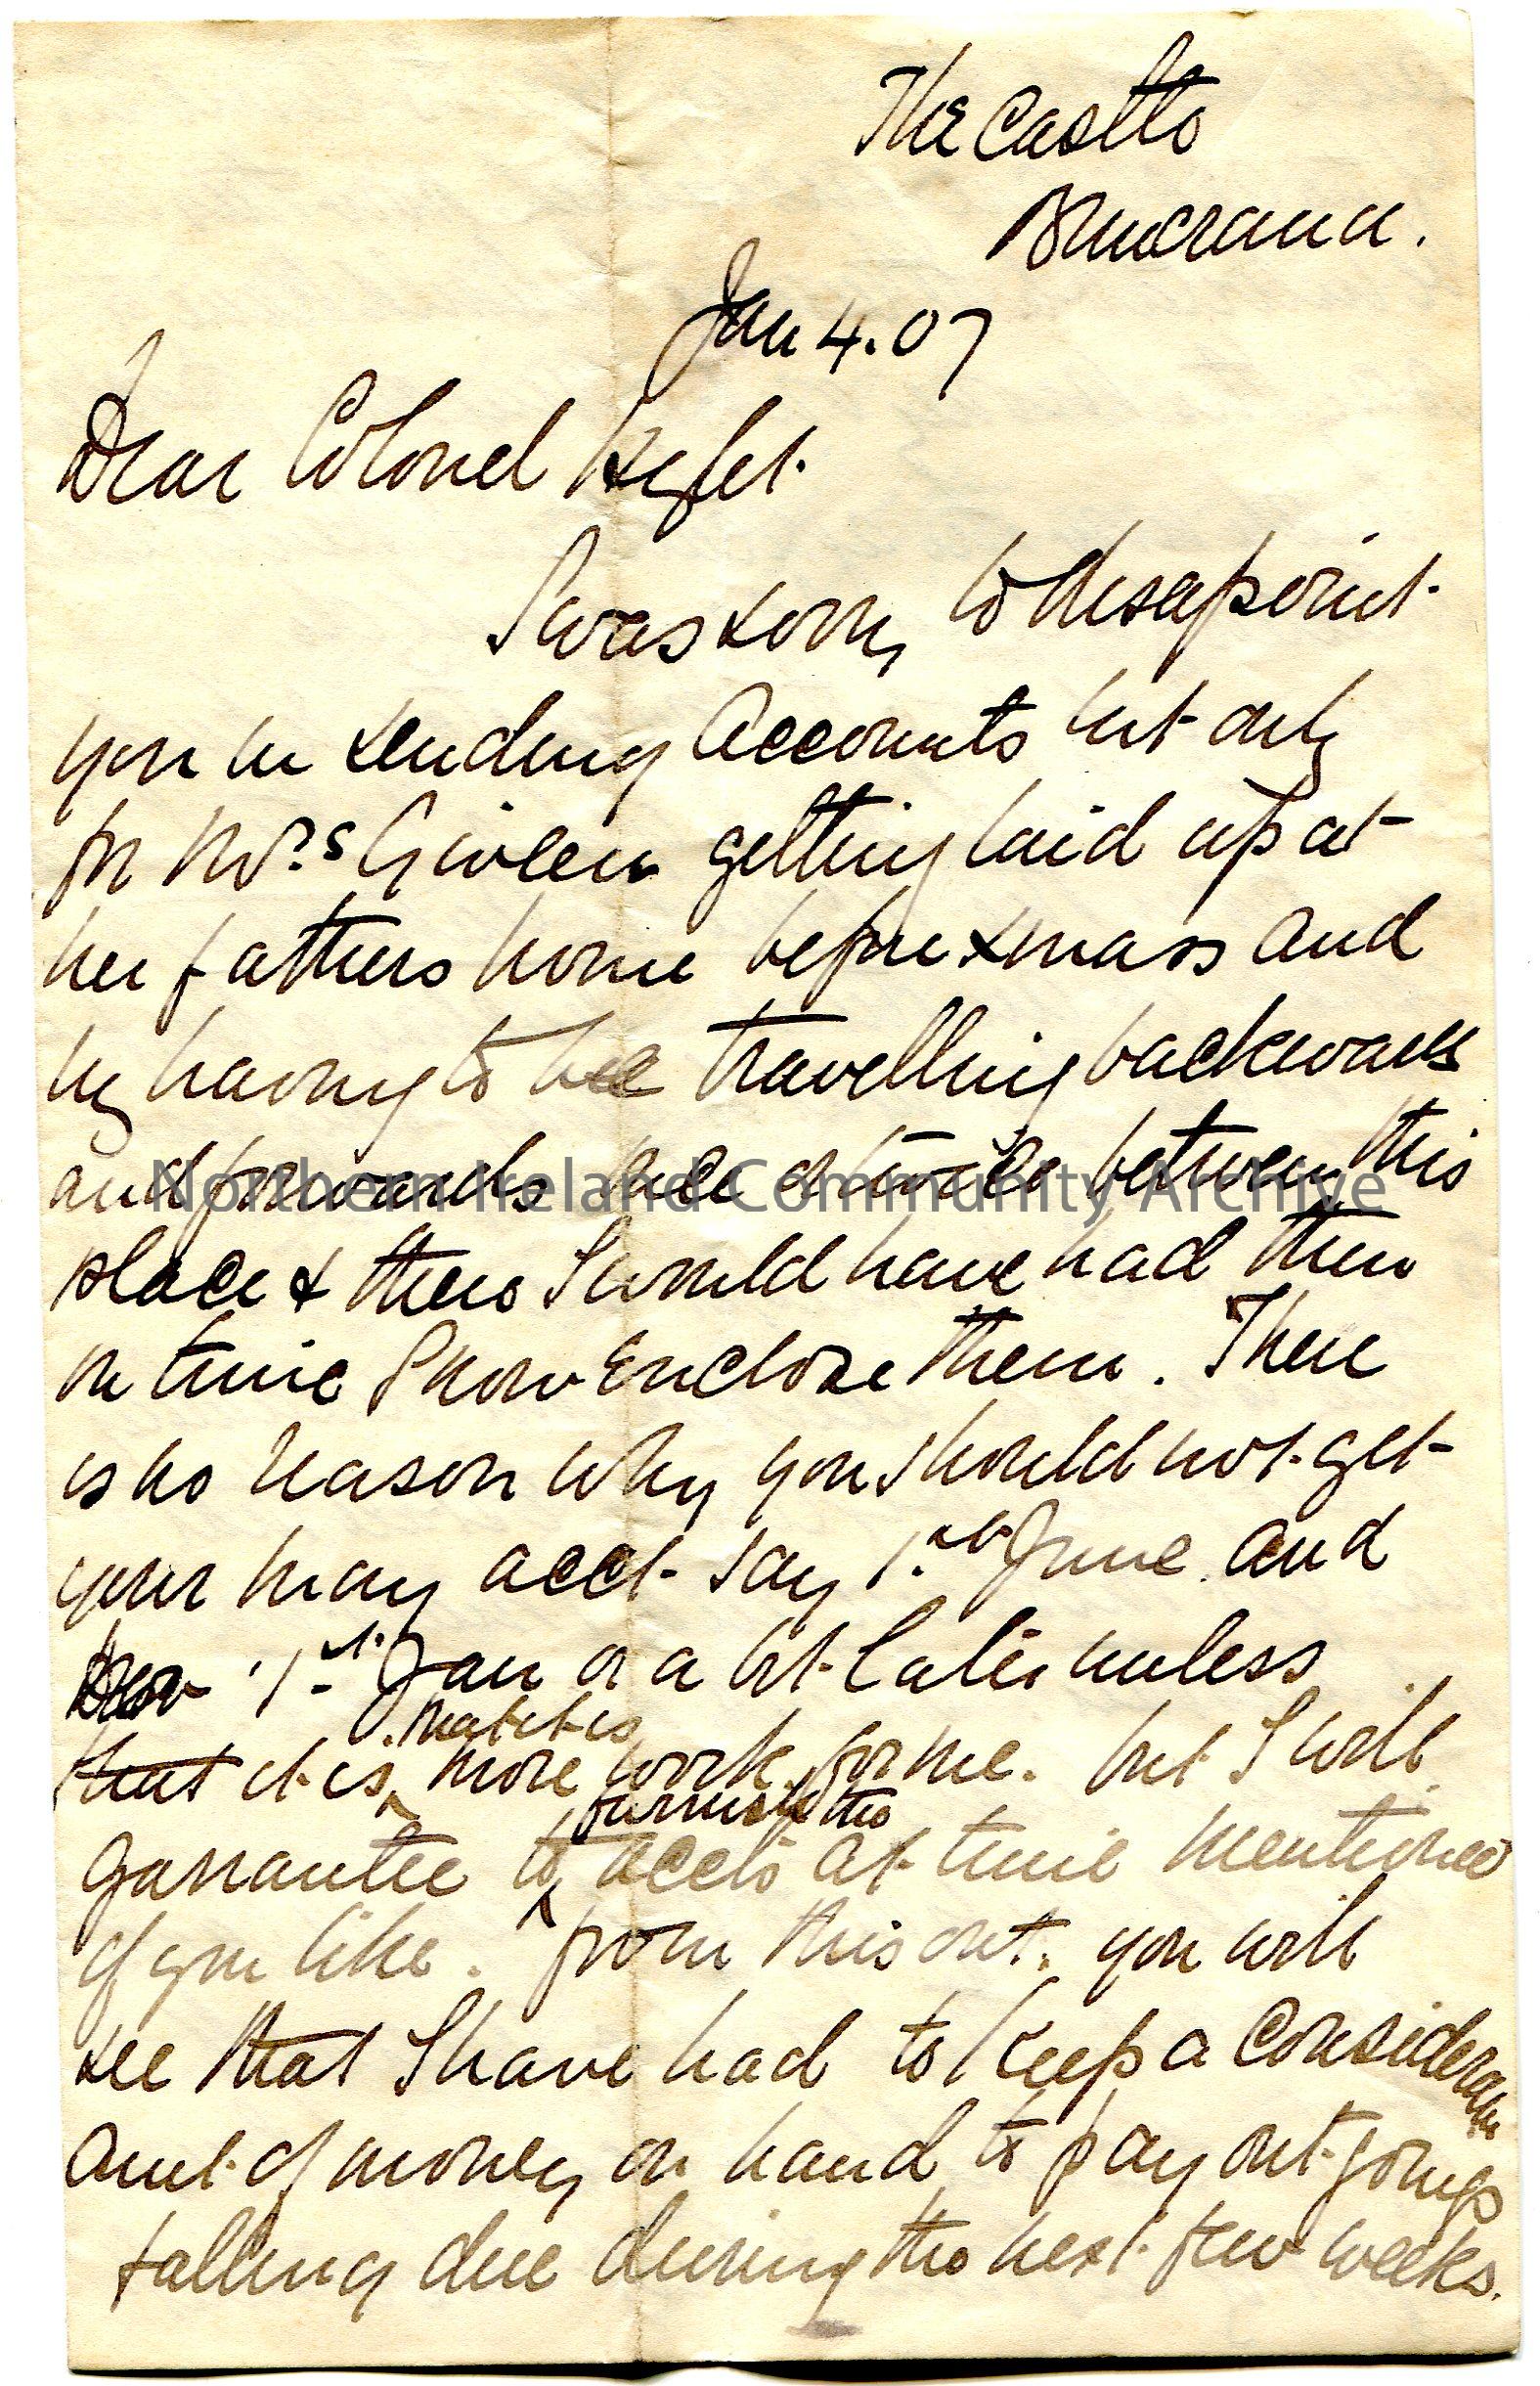 The Castle
Buncrana.
Jan 4. 07
Dear Colonel
I was sorry to disapoint
you in sending Accounts but only
for Mrs Given getting laid up at
her fathers home before xmass and
my having to be travelling backwards
and forwards between this
place & there I would have had them
in time I now Enclose them. There
is no reason why you should not get
your may acct say 1st June and
Nov 1st Jan or a bit later unless
that it is that it is more work for me. but I will
garrantee to furnish the accts at time mentioned
if you like. from this out. you will
see that I have had to keep a considerable
amt. of money on hand to pay out goings
falling due during the next few weeks.
Northern Ireland Community Archive